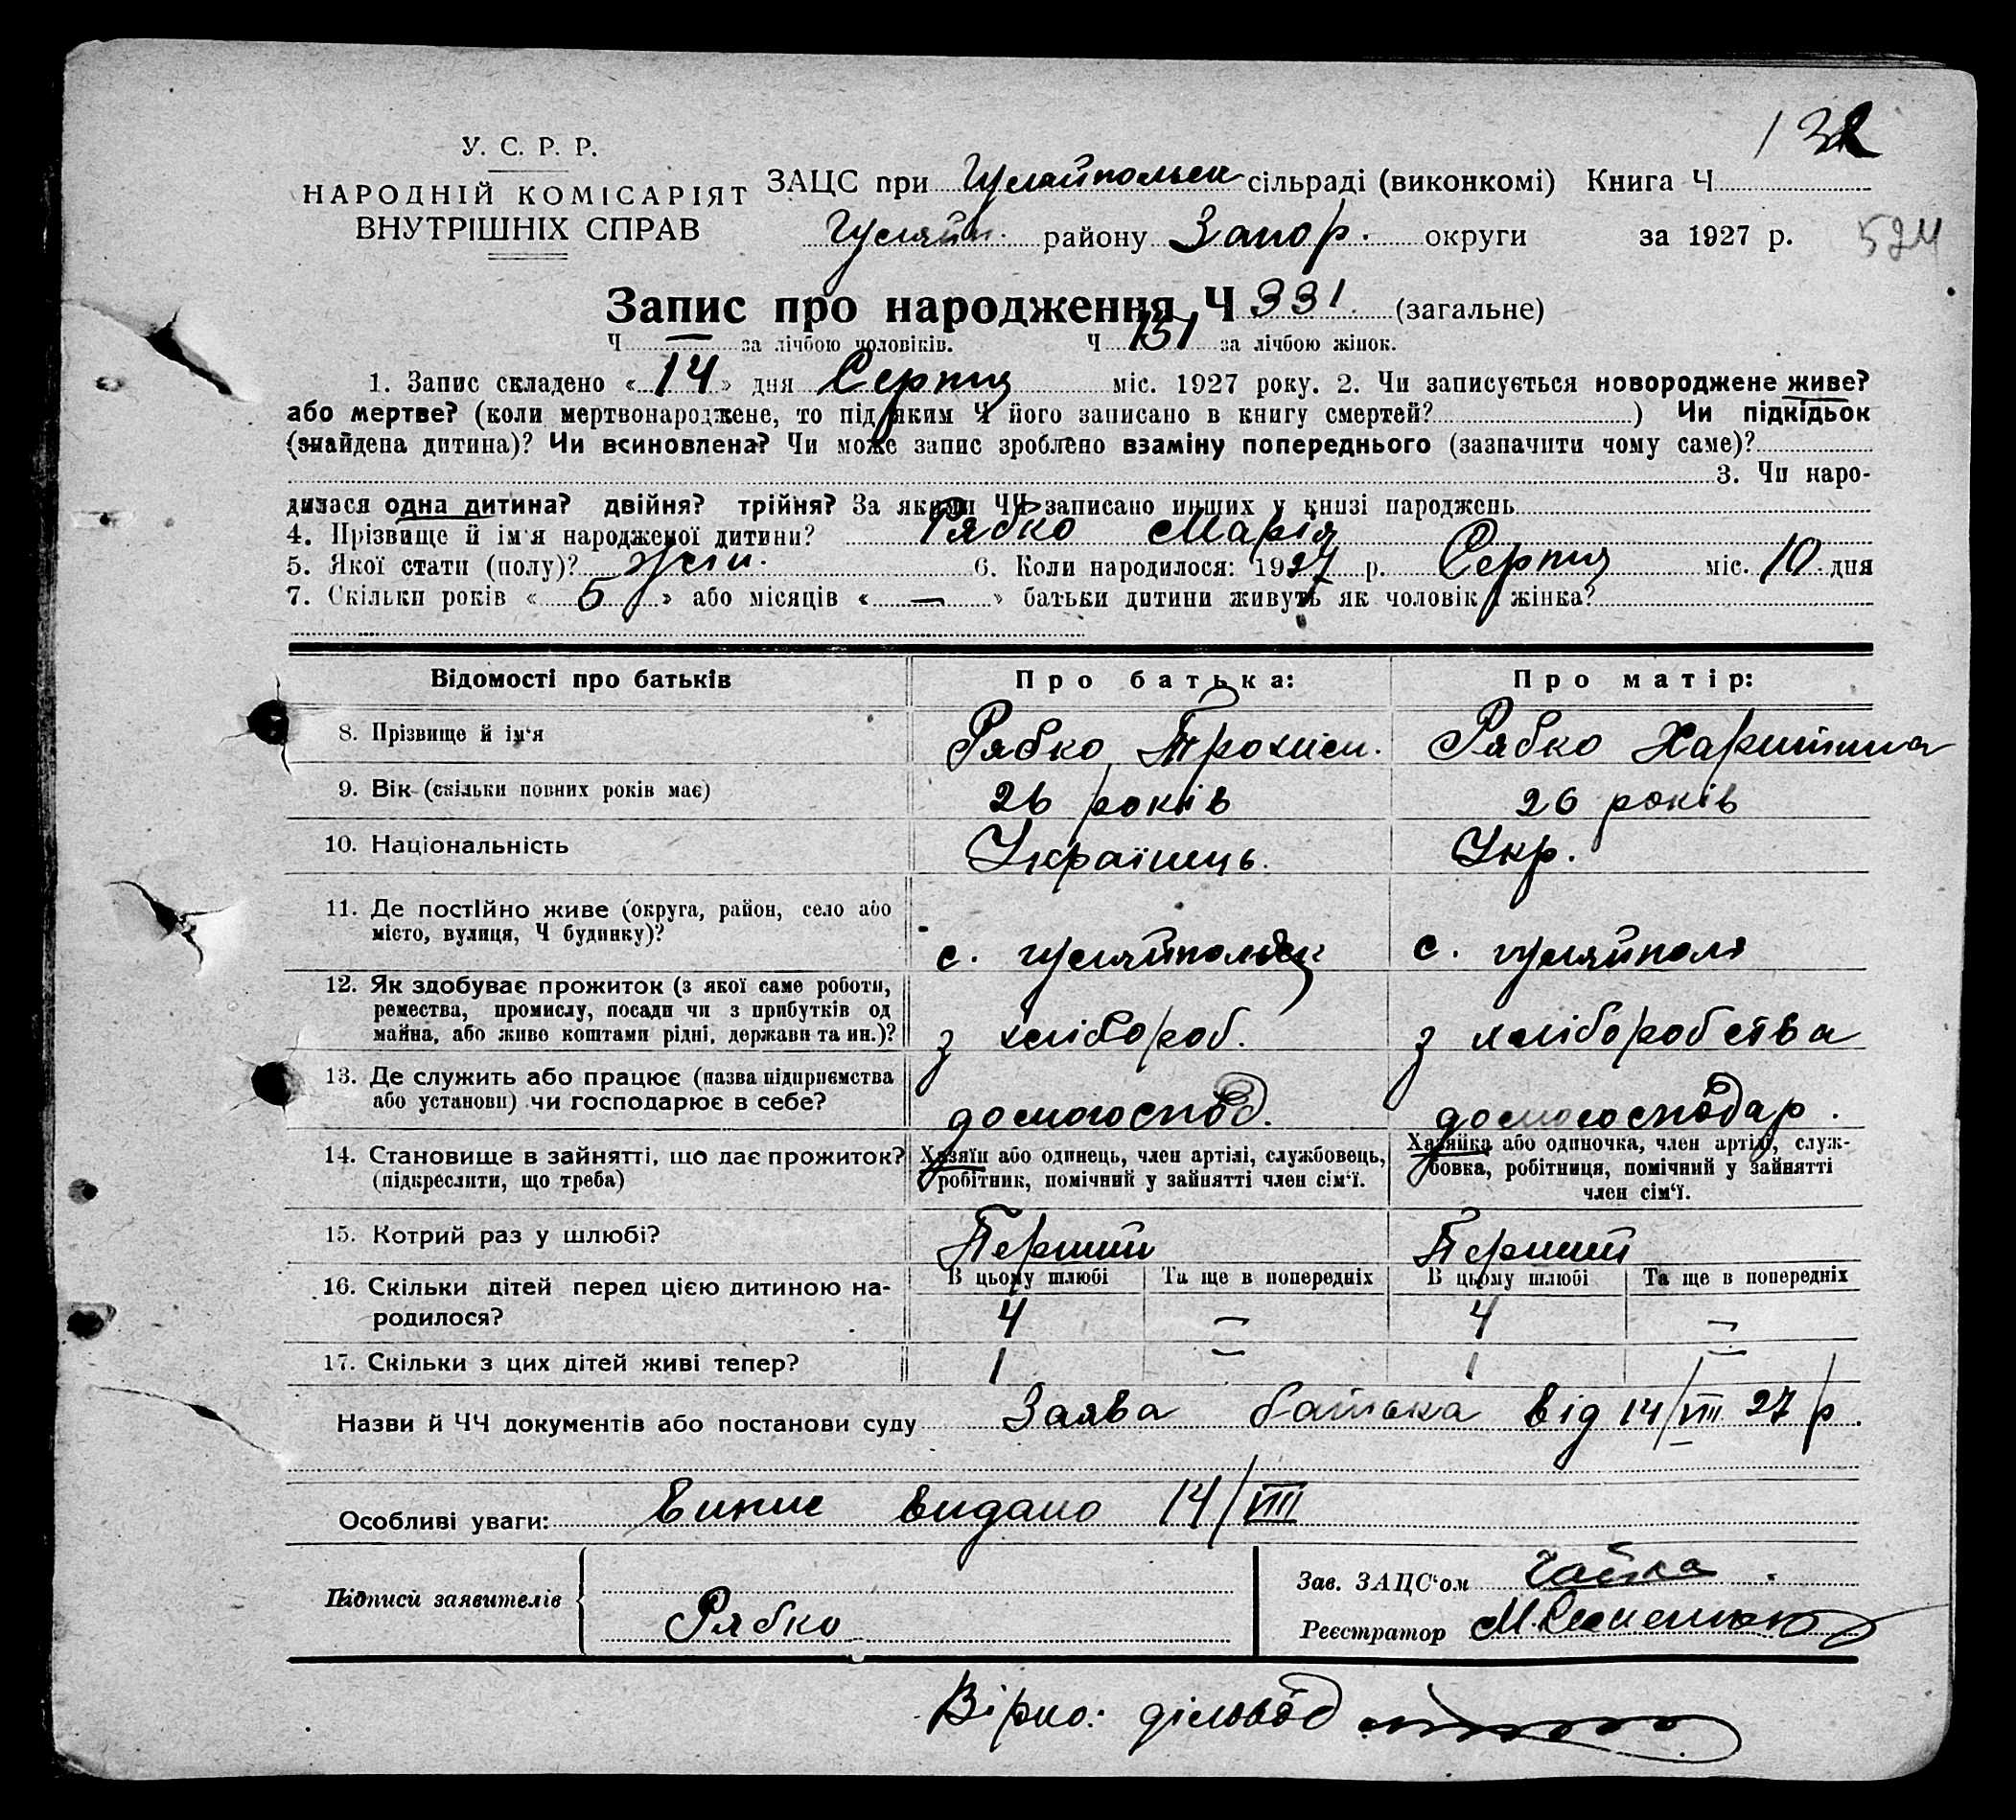 132
У. С. Р. Р.
НАРОДНІЙ КОМІСАРІЯТ
ВНУТРІШНІХ СПРАВ
ЗАЦС при Гуляйпольськ сільраді (виконкомі) Книга Ч
Гуляйп. району Запор. округи за 1927 р.
524
Запис про народження Ч 331. (загальне)
Ч — за лічбою чоловіків. Ч 151 за лічбою жінок.
1. Запис складено «14» дня Серпня міс. 1927 року. 2. Чи записується новороджене живе?
або мертве? (коли мертвонароджене, то під яким Ч його записано в книгу смертей? ) Чи підкідьок
(знайдена дитина)? Чи всиновлена? Чи може запис зроблено взаміну попереднього (зазначити чому саме)?
3. Чи наро-
дилася одна дитина? двійня? трійня? За якими ЧЧ записано инших у книзі народжень
4. Прізвище й ім'я народженої дитини? Рябко Марія
5. Якої стати (полу)? жін. 6. Коли народилося: 1927 р. Серпня міс. 10 дня
7. Скільки років «5» або місяців «—» батьки дитини живуть як чоловік і жінка?
Відомості про батьків Про батька: Про матір:
8. Прізвище й ім'я Рябко Трохим. Рябко Харитина
9. Вік (скільки повних років має) 26 років 26 років
10. Національність Українець. Укр.
11. Де постійно живе (округа, район, село або
місто, вулиця, Ч будинку)?
с. Гуляйпольськ с. Гуляйполя
12. Як здобуває прожиток (з якої саме роботи,
ремества, промислу, посади чи з прибутків од
майна, або живе коштами рідні, держави та ин.)?
з хлібороб. з хліборобства
13. Де служить або працює (назва підприємства
або установи) чи господарює в себе?
домогоспод. домогосподар.
14. Становище в зайнятті, що дає прожиток?
(підкреслити, що треба)
Хазяїн або одинець, член артілі, службовець,
робітник, помічний у зайнятті член сім'ї.
Хазяйка або одиночка, член артілі, служ-
бовка, робітниця, помічний у зайнятті
член сім'ї.
15. Котрий раз у шлюбі? Перший Перший
В цьому шлюбі Та ще в попередніх В цьому шлюбі Та ще в попередніх
16. Скільки дітей перед цією дитиною на-
родилося?
4 — 4 —
17. Скільки з цих дітей живі тепер? 1 — 1 —
Назви й ЧЧ документів або постанови суду Заява батька від 14/VIII 27 р.
Особливі уваги: Випис видано 14/VIII
Підписи заявителів
Рябко
Зав. ЗАЦС'ом Чайка.
Реєстратор
Вірно: діловод